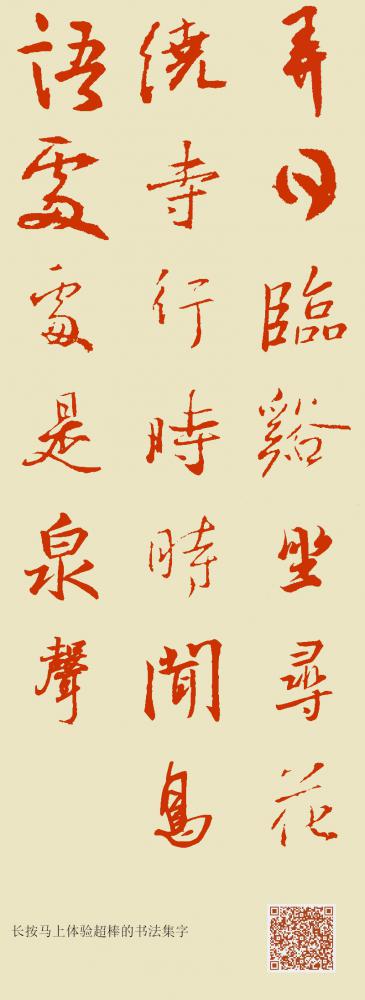 弄日臨谿坐尋花
繞寺行時時聞鳥
語處處是泉聲
长按马上体验超棒的书法集字